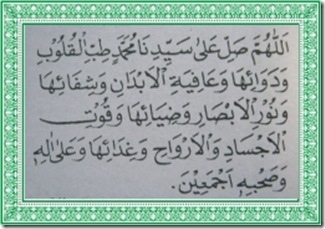 اَللّٰهُمَّ صَلِّ عَلٰى سَيِّدِنَا مُحَمَّدٍ طِبِّ الْقُلُوْبِ
وَدَوَائِهَا وَعَافِيَةِ الْاَبْدَانِ وَشِفَائِهَا
وَنُوْرِ الْاَبْصَارِ وَضِيَائِهَا وَقُوْتِ
الْاَجْسَادِ وَالْاَرْوَاحِ وَغِذَائِهَا وَعَلٰى اٰلِهِ
وَصَحْبِهِ اَجْمَعِيْنَ.